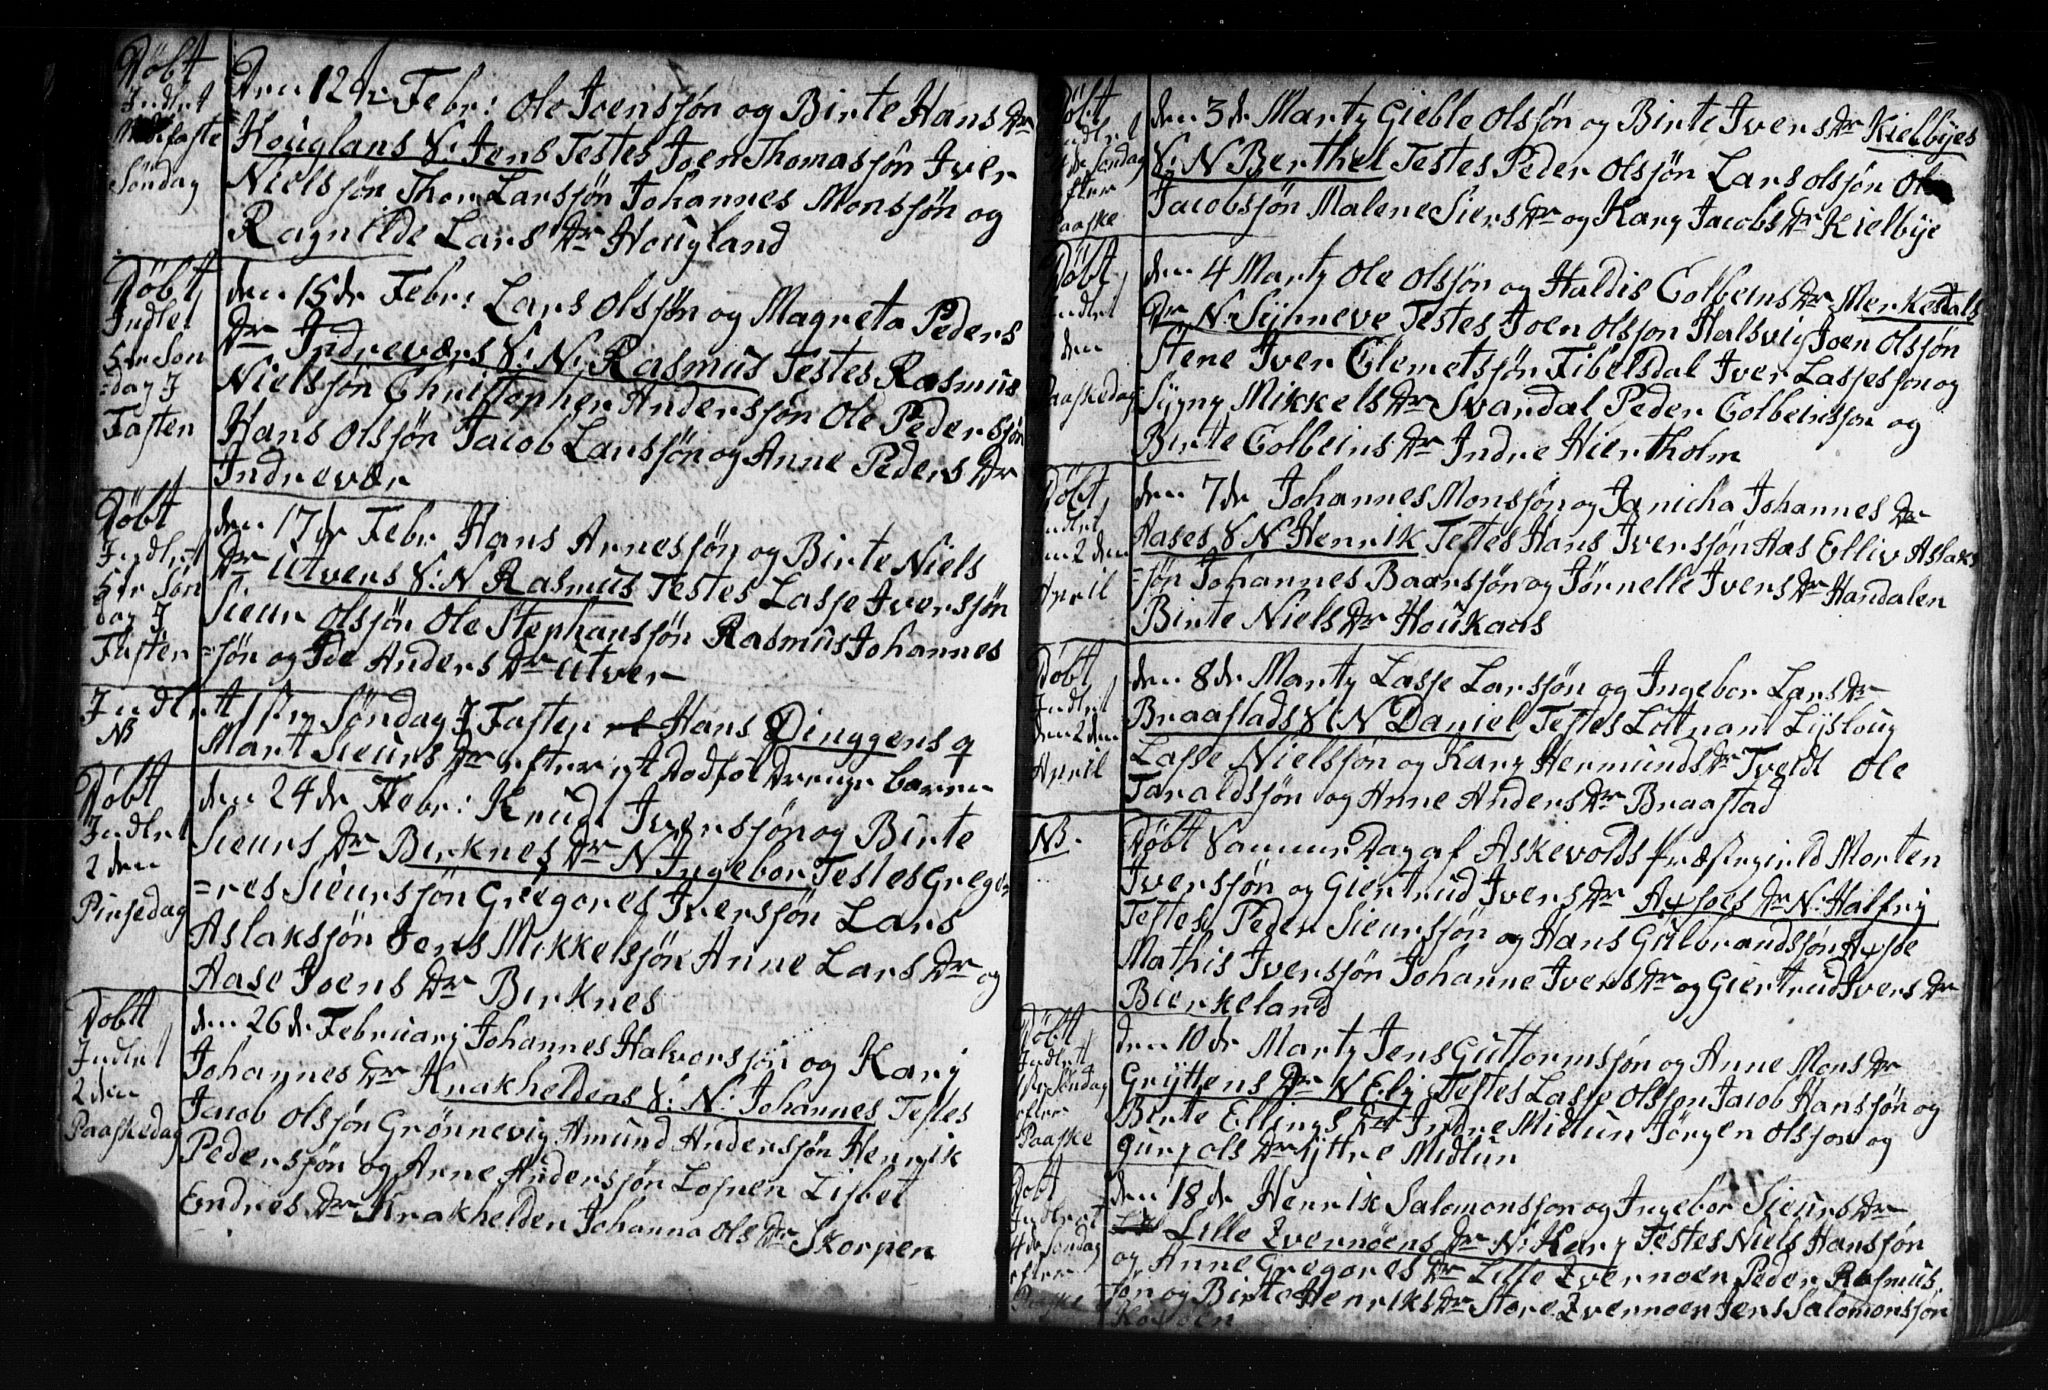 Døbt
Indlet
Midfaste
Søndag
Den 12de Febr: Ole Joensjøn og Birte Hans Dr
Houglans S: Jens Testes Joen Thomasjøn Iver
Nielssjøn Thor Larsjøn Johannes Monssjøn og
Ragnilde Lars Dr Hougland
Døbt
Indlet
5te Søn
=dag I
Fasten
den 15de Febr: Lars Olsjøn og Magreta Peders
Dr Indreværs S: N: Rasmus Testes Rasmus
Nielsjøn Christopher Andersjøn Ole Pedersjøn
Hans Olsjøn Jacob Larsjøn og Anne Peders Dr
Indrevær
Døbt
Indlet
5te Søn
dag I
Fasten
den 17de Febr Hans Arnesjøn og Birte Niels
Dr Utvers S: N Rasmus Testes Lasse Iversjøn
Sieur Olsjøn Ole Stephansjøn Rasmus Johannes
=sjøn og Anders Dr Utver
Indlet 1ste Søndag I Fasten Hans Dinggens q
NB
Mart Sieurs Dr efter et Dødføt Drenge barn
Døbt
Indlet
2den
Pinsedag
den 24de Febr: Knud Iversjøn og Birte
Sieurs Dr Birknes Dr N Ingebor Testes Grego
=res Sieursjøn Gregores Iversjøn Lars
Aslaksjøn Jens Mikkelsjøn Anne Lars Dr og
Aase Joens Dr Birknes
Døbt
Indlet
2den
Paaskedag
den 26de Februarj Johannes Halvorsjøn og Karj
Johannes Dr Krakheldens S: N: Johannes Testes
Jacob Olsjøn Grønnevig Amund Andersjøn Henrik
Pedersjøn og Arne Andersjøn Losnen Lisbet
Endres Dr Krakhelden Johanna Ols Dr Skorpen
Døbt
Indlet
4de Søndag
efter
Paaske
den 3de Martz Gieble Olsjøn og Birte Ivers Dr Kielbyes
S: N Berthel Testes Peder Olsjøn Lars Olsjøn Ole
Jacobsjøn Malene Siers Dr og Karj Jacobs Dr Kielbye
Døbt
Indlet
den
Paaskedag
den 4 Martz Ole Olsjøn og Haldis Colbeins Dr Merkesdals
Dr N: Synneve Testes Joen Olsjon Halsvig Joen Olsjøn
Stene Iver Clemetsjøn Fibelsdal Iver Lassesjon og
Sygny Mikkels Dr Svardal Peder Colbeinsjon og
Birte Colbeins Dr Indre Hiertholm
Døbt
Indlet
den 2den
April
den 7de Johannes Monsjøn og Janicha Johannes Dr
Aases S N Henrik Testes Hans Iversjøn Aas Elliv Aslak
=sjøn Johannes Baarsjøn og Jørnelle Ivers Dr Handalen
Birte Niels Dr Houkaas
Døbt
Indlet
den 2den
April
den 8de Martz Lasse Larsjøn og Ingebor Lars Dr
Braastads S: N Daniel Testes Lottnant Lysloug
Lasse Nielsjøn og Karj Hermunds Dr Tveidt Ole
Taraldsjøn og Anne Anders Dr Braastad
NB.
Døbt Samme Dag af Askevolds Præstegield Morten
Iversjøn og Giertrud Ivers Dr Axsoes Dr N: Halfrij
Testes Peder Sieursjøn og Hans Gulbrandsjøn Axsoe
Mathis Iversjøn Johanne Ivers Dr og Giertrud Ivers Dr
Bierkeland
Døbt
Indlet
1ste Søndag
efter
Paaske
den 10de Martz Jens Guttormsjøn og Anne Mons Dr
Gryttens Dr N Elj Testes Lasse Olsjøn Jacob Hansjøn og
Birte Ellings Dr Indre Midtun Jørgen Olsjon og
Gurj Ols Dr Yttre Midtun
Døbt
Indlet
4de Søndag
efter
Paaske
den 18de Henrik Salomonsjon og Ingebor Sieurs Dr
Lille Zvernøens Dr N: Karj Testes Niels Hansjøn
og Anne Gregores Dr Lille Zvernoen Peder Rasmus
søn og Birte Henriks Dr Store Zvernoen Jens Salomonsjøn